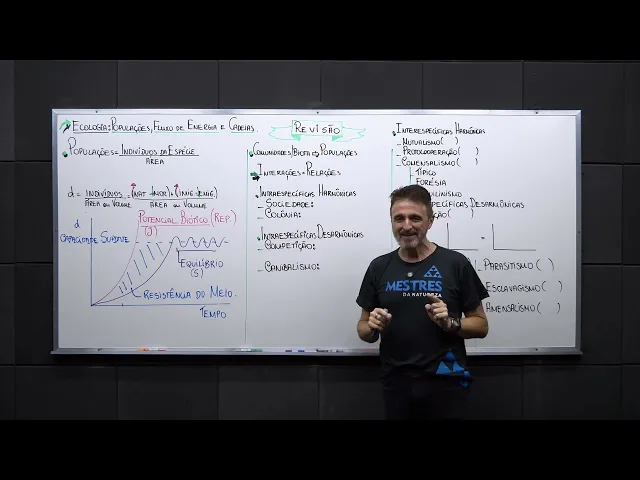 ECOLOGIA: POPULAÇÕES, FLUXO DE ENERGIA E CADEIAS.
POPULAÇÕES = INDIVÍDUOS DA ESPÉCIE
ÁREA
d = INDIVÍDUOS = (NAT - MOR) + (IMIG - EMIG)
ÁREA OU VOLUME ÁREA OU VOLUME
d
POTENCIAL BIÓTICO (REP.)
(J)
CAPACIDADE SUPORTE
EQUILÍBRIO
(S)
RESISTÊNCIA DO MEIO.
TEMPO
REVISÃO
COMUNIDADES BIOTA POPULAÇÕES
INTERAÇÕES = RELAÇÕES
INTRAESPECÍFICAS HARMÔNICAS
- SOCIEDADE:
- COLÔNIA:
INTRAESPECÍFICAS DESARMÔNICAS
COMPETIÇÃO:
- CANIBALISMO:
INTERESPECÍFICAS HARMÔNICAS
- MUTUALISMO ( )
- PROTOCOOPERAÇÃO ( )
- COMENSALISMO ( )
TÍPICO
FORÉSIA
INQUILINISMO
DESARMÔNICAS
=
- PARASITISMO ( )
ESCLAVAGISMO ( )
AMENSALISMO ( )
MESTRES
DA NATUREZA